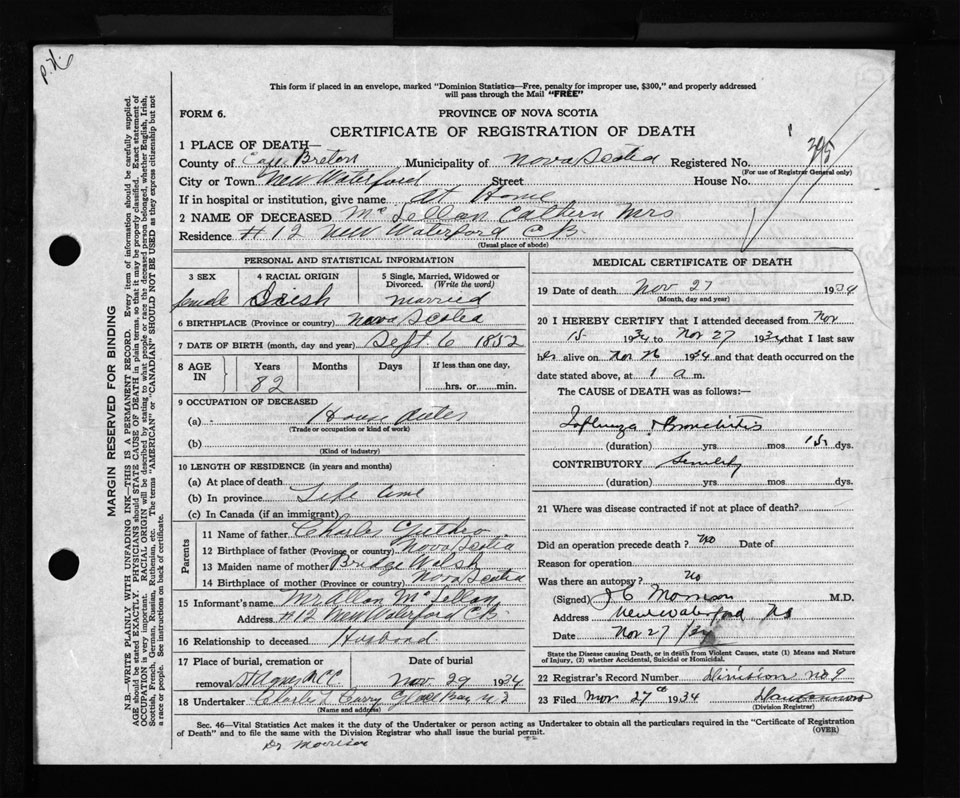 P.H. 6
This form if placed in an envelope, marked "Dominion Statistics—Free, penalty for improper use, $300," and properly addressed
will pass through the Mail "FREE"
FORM 6.
PROVINCE OF NOVA SCOTIA
CERTIFICATE OF REGISTRATION OF DEATH
1 PLACE OF DEATH—
County of Cape Breton Municipality of Nova Scotia Registered No. 395
(For use of Registrar General only)
City or Town New Waterford Street House No.
If in hospital or institution, give name at Home
2 NAME OF DECEASED Mc Lellan Mrs
Residence #12 New Waterford C B.
(Usual place of abode)
PERSONAL AND STATISTICAL INFORMATION
3 SEX 4 RACIAL ORIGIN 5 Single, Married, Widowed or Divorced. (Write the word)
female Irish married
6 BIRTHPLACE (Province or country) Nova Scotia
7 DATE OF BIRTH (month, day and year) Sept 6 1852
8 AGE IN Years Months Days If less than one day,
82 hrs. or min.
9 OCCUPATION OF DECEASED
(a) House Duties
(Trade or occupation or kind of work)
(b)
(Kind of industry)
10 LENGTH OF RESIDENCE (in years and months)
(a) At place of death
(b) In province Life time
(c) In Canada (if an immigrant)
Parents
11 Name of father Charles Guthro
12 Birthplace of father (Province or country) Nova Scotia
13 Maiden name of mother Bridge Walsh
14 Birthplace of mother (Province or country) Nova Scotia
15 Informant's name Mr Allan Mc Lellan
Address #12 New Waterford C B.
16 Relationship to deceased Husband
17 Place of burial, cremation or removal Date of burial
St Agnes Nov 29 1934
18 Undertaker Charles L Barry
(Name and address)
MEDICAL CERTIFICATE OF DEATH
19 Date of death Nov 27 1934
(Month, day and year)
20 I HEREBY CERTIFY that I attended deceased from Nov
15 1934 to Nov 27 1934, that I last saw
her alive on Nov 26 1934 and that death occurred on the
date stated above, at 1 a m.
The CAUSE OF DEATH was as follows:—
Influenza & Bronchitis
(duration) yrs mos 15 dys.
CONTRIBUTORY Senility
(duration) yrs. mos. dys.
21 Where was disease contracted if not at place of death?
Did an operation precede death? No Date of
Reason for operation
Was there an autopsy? No
(Signed) J C Morrison M.D.
Address New Waterford NS
Date Nov 27 /34
State the Disease causing Death, or in death from Violent Causes, state (1) Means and Nature
of Injury, (2) whether Accidental, Suicidal or Homicidal.
22 Registrar's Record Number Division No. 9
23 Filed Nov 27th 1934
(Division Registrar)
Sec. 46—Vital Statistics Act makes it the duty of the Undertaker or person acting as Undertaker to obtain all the particulars required in the "Certificate of Registration
of Death" and to file the same with the Division Registrar who shall issue the burial permit.
(OVER)
Dr Morrison
MARGIN RESERVED FOR BINDING
N.B.—WRITE PLAINLY WITH UNFADING INK—THIS IS A PERMANENT RECORD. Every item of information should be carefully supplied.
AGE should be stated EXACTLY. PHYSICIANS should STATE CAUSE OF DEATH in plain terms, so that it may be properly classified. Exact statement of
OCCUPATION is very important. RACIAL ORIGIN will be described by stating to what people or race the deceased person belonged, whether English, Irish,
Scottish, French, German, Russian, Ruthenian, etc. The terms "AMERICAN" or "CANADIAN" SHOULD NOT BE USED as they express citizenship but not
a race or people. See instructions on back of certificate.